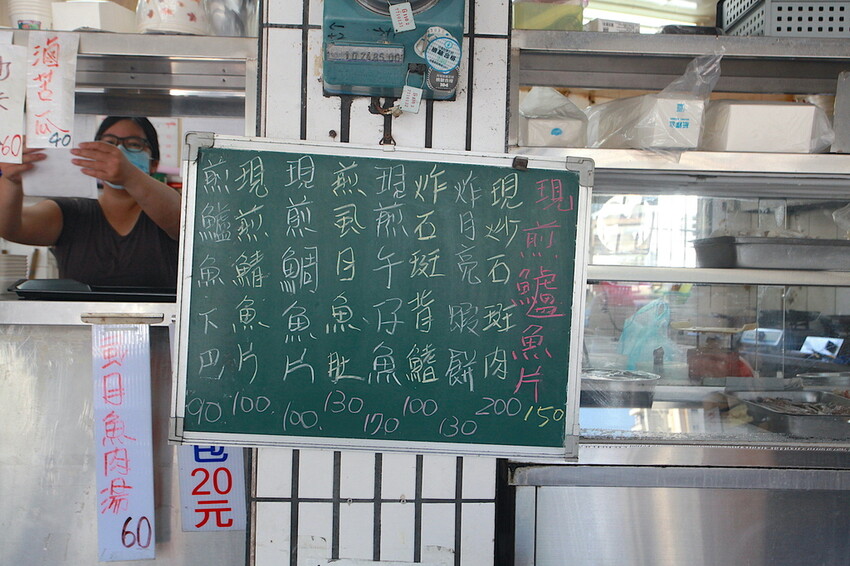 現煎鱸魚片 150
現炒石斑肉 200
炸月亮蝦餅 130
炸石斑背鰭 100
現煎午仔魚 170
煎虱目魚肚 130
現煎鯛魚片 100.
現煎鯖魚片 100.
煎鱸魚下巴 90.
滷苦瓜 40
60
虱目魚肉湯 60
20元